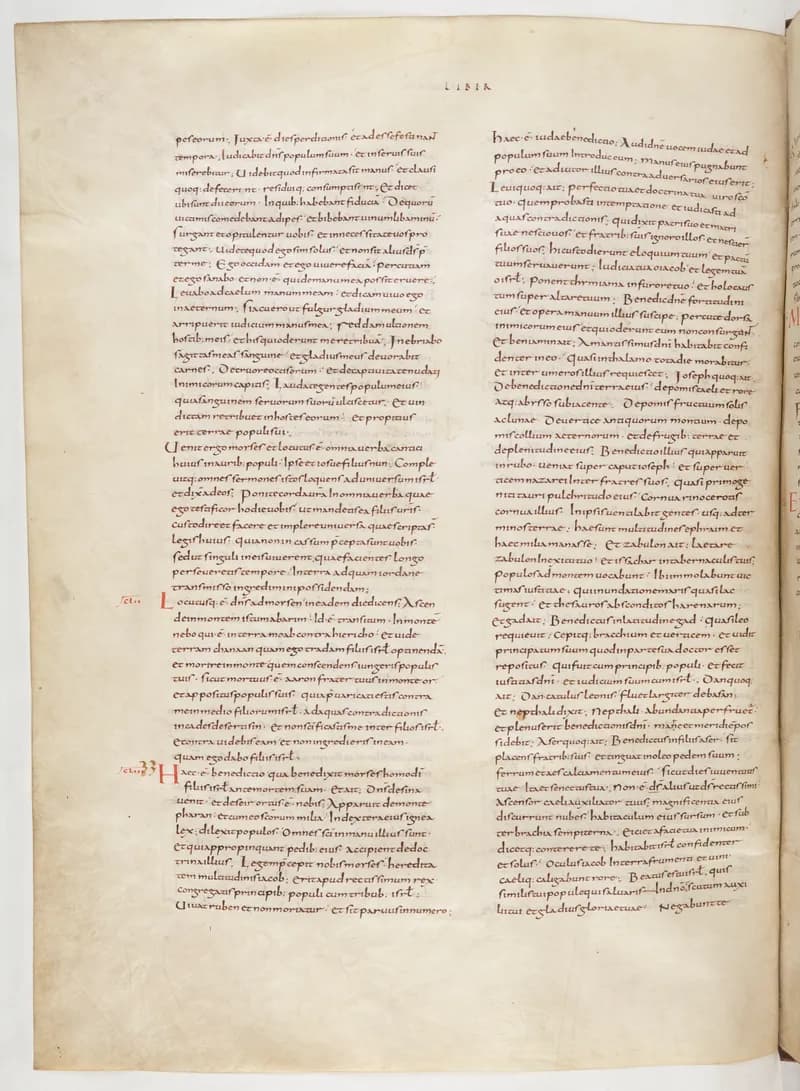 LIBER
peseorum · Juxta ÷ dies perdicionis · et adesse festinant
tempora, Iudicabit dns populum suum · et inseruis suis
miserebitur; Uidebit quod infirmata sit manus · et clausi
quoq: defecerint · residuiq; consumpti sint; Et dicit ·
ubi sunt dii eorum · In quib: habebant fiducia · De quorum
uictimis comedebant adipes · et bibebant uinum libaminu;
Surgant et opitulentur uobis · et in necessitate uos pro
tegant; Uidete quod ego sim solus · et non sit alius ds p
ter me; Ego occidam et ego uiuere facia · percutiam
et ego sanabo · et non ÷ qui de manu mea possit eruere;
Leuabo ad caelum manum meam · et dicam uiuo ego
in aeternum; Si acuero ut fulgur gladium meum · et
arripuerit iudicium manus mea; Reddam ultionem
hostib: meis · et his qui oderunt me retribua; Inebriabo
sagittas meas sanguine · et gladius meus deuorabit
carnes; De cruore occisorum · et de captiuitate nudati
Inimicorum capitis; Laudate gentes populum eius
quia sanguinem seruorum suoru ulciscetur; Et uin
dictam retribuet in hostes eorum · et propitius
erit terrae populi sui;
Uenit ergo moyses et locutus ÷ omnia uerba cantici
huius in aurib: populi · Ipse et iosue filius nun; Comple
uitq: omnes sermones istos loquens ad uniuersum isrl ·
et dix ad eos; Ponite corda ura In omnia uerba quae
ego testificor hodie uobis · ut mandetis ea filiis uris
custodire et facere et implere uniuersa quae scripta st
legis huius · quia non in cassum pcepta sunt uobis ·
sed ut singuli in eis uiuerent; quae facientes longo
perseueretis tempore · In terra ad quam iordane
transmisso ingredimini possidendam;
Locutusq: ÷ dns ad moysen in eadem die dicens; Ascen
de in montem istum abarim · Id ÷ transituum · In monte
nebo qui ÷ in terra moab contra hiericho · et uide
terram chanaan quam ego tradam filiis isrl optinenda;
et morire in monte quem conscendens iungeris populis
tuis · sicut mortuus ÷ aaron frater tuus in monte or
et appositus populis suis · quia puaricati estis contra
me in medio filiorum isrl · ad aquas contradictionis
in cades deserti sin · et non scificastis me inter filios isrl ·
E contra uidebis eam et non ingredieris in eam ·
quam ego dabo filiis isrl ·
33
Haec ÷ benedictio qua benedixit moyses homo di
filiis isrl ante mortem suam · et ait; Dns de sina
uenit · et de seir ortus ÷ nobis; Apparuit de monte
pharan · et cum eo scorum milia · In dextera eius ignea
lex; dilexit populos; Omnes sci in manu illius sunt ·
et qui appropinquant pedib: eius accipient de doc
trina illius; Legem pcepit nobis moyses hereditа
tem multitudinis iacob; erit apud rectissimum rex
congregatis principib: populi cum tribub: isrl ;
Uiuat ruben et non moriatur · et sit paruus in numero;
haec ÷ iudae benedictio; Audi dne uocem iudae et ad
populum suum Introduc eum; manus eius pugnabunt
pro eo · et adiutor illius contra aduersarios eius erit;
Leui quoq: ait; perfectio tua et doctrina tua uiro sco
tuo · quem probasti in temptatione · et iudicasti ad
aquas contradictionis; qui dixit patri suo et matri
suae nescio uos · et fratrib: suis ignoro illos · et nescier
filios suos; hi custodierunt eloquium tuum · et pactu
tuum seruauerunt; Iudicia tua o iacob · et legem tua
o isrl; ponent thymiama in furore tuo · et holocaus
tum super altare tuum; Benedic dne fortitudini
eius · et opera manuum illius suscipe; percute dorsa
inimicorum eius · et qui oderunt eum non consurgant ·
et beniamin ait; Amantissimus dni habitabit confi
denter in eo · quasi in thalamo tota die morabitur ·
et inter umeros illius requiescet; Joseph quoq: ait;
De benedictione dni terra eius · de pomis caeli et rore
atq: abysso subiacente · De pomis fructuum solis
ac lunae · De uertice antiquorum montium · de po
mis collium aeternorum · et de frugib: terrae et
de plenitudine eius; Benedictio illius qui apparuit
in rubo · ueniat super caput ioseph · et super uer
ticem nazarei Inter fratres suos; quasi primoge
niti tauri pulchritudo eius · Cornua rinocerotis
cornua illius · In ipsis uentilabit gentes · usq: ad ter
minos terrae; hae sunt multitudines ephraim et
haec milia manasse; Et zabulon ait; laetare
zabulon In exitu tuo · et issachar in tabernaculis tuis;
Populos ad montem uocabunt · Ibi immolabunt uic
timas iustitiae; qui inundationem maris quasi lac
sugent · et thesauros absconditos harenarum;
et gad ait; Benedictus in latitudine gad · quasi leo
requieuit; Cepitq: bracchium et uerticem · et uidit
principatum suum quod in parte sua doctor esset
repositus · qui fuit cum principib: populi · et fecit
iustitias dni · et iudicium suum cum isrl; Dan quoq:
ait; Dan catulus leonis; fluet largiter de basan;
et nepthali dixit; Nepthali abundantia pfruet ·
et plenus erit benedictionis dni · mare et meridie pos
sidebit; Aser quoq: ait; Benedictus in filiis aser · sit
placens fratrib: suis · et tinguat in oleo pedem suum;
ferrum et aes calciamentum eius · Sicut dies iuuentutis
tuae · Ita et senectus tua; Non ÷ ds alius ut ds rectissimi ·
Ascensor caeli auxiliator tuus; magnificentia eius
discurrunt nubes; habitaculum eius sursum · et sub
ter brachia sempiterna; eiciet a facie tua inimicum ·
dicetq: conterere ; habitabit isrl confidenter
et solus; Oculus iacob In terra frumenti et uini ·
caeliq: caligabunt rore; Beatus es tu isrl; quis
similis tui popule qui saluaris In dno; scutum auxi
lii tui et gladius gloriae tuae · Negabunt te